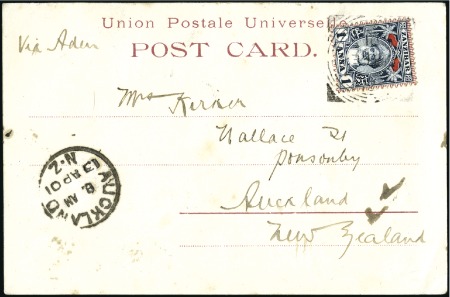 Union Postale Universelle
POST CARD.
Via Aden
ZANZIBAR
Mrs Kerner
Wallace St
Ponsonby
Auckland
New Zealand
AUCKLAND N.Z
8 AM
13 AP 01